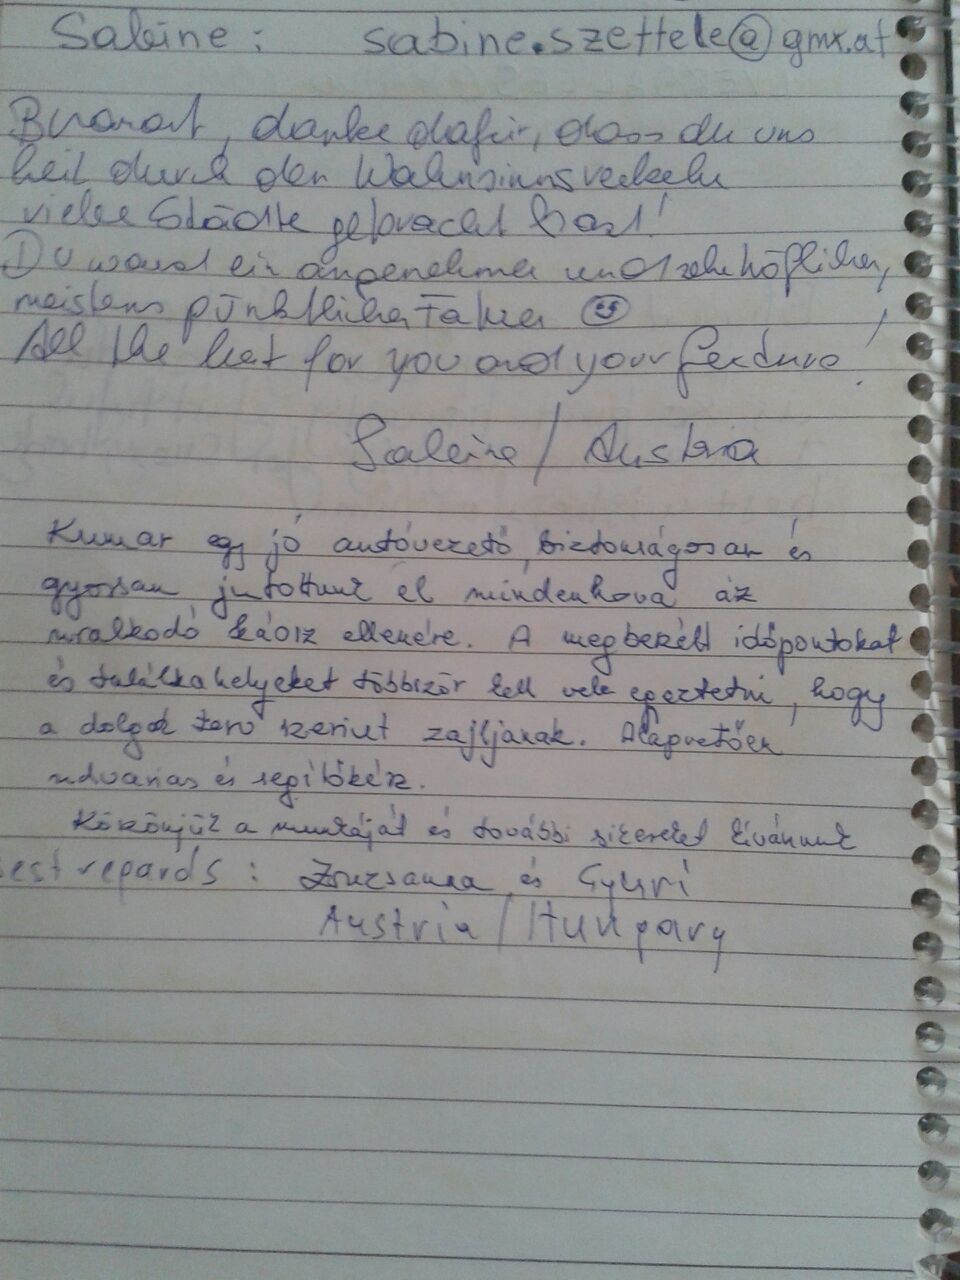 Sabine: sabine.szettele@gmx.at
danke dafür, dass du uns
heil durch den Wahnsinnsverkehr
vieler Städte gebracht hast!
Du warst ein angenehmer und sehr höflicher,
meistens pünktlicher Fahrer
All the best for you and your!
Sabine / Austria
Kumar egy jó autóvezető, biztonságosan és
gyorsan jutottunk el mindenhova az
uralkodó káosz ellenére. A megbeszélt időpontokat
és találkahelyeket többször kell vele egyeztetni, hogy
a dolgok terv szerint zajljanak. Alapvetően
udvarias és segítőkész.
Köszönjük a munkáját és további sikereket kívánunk
est regards: Zsuzsanna és Gyuri
Austria / Hungary